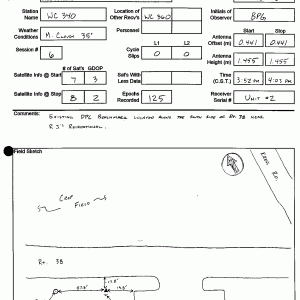 Station Name WC 340 Location of Other Rcvr's WC 360 Initials of Observer BPG
Weather Conditions M. Cloudy 35° Personnel Start Stop
Antenna Offset (m) 0.441 0.441
Session # 6 Cycle Slips L1 0 L2 0 Antenna Height (m) 1.455 1.455
# of Sat's GDOP
Satellite Info @ Start 7 3 Sat's With Less Data Time (C.S.T.) 3:52 PM 4:03 PM
Satellite Info @ Stop 8 2 Epochs Recorded 125 Receiver Serial # Unit #2
Comments: Existing DPC Benchmark located along the south side of Rt. 38 near
R.J's Recreational.
Field Sketch
Crop Field
Rt. 38